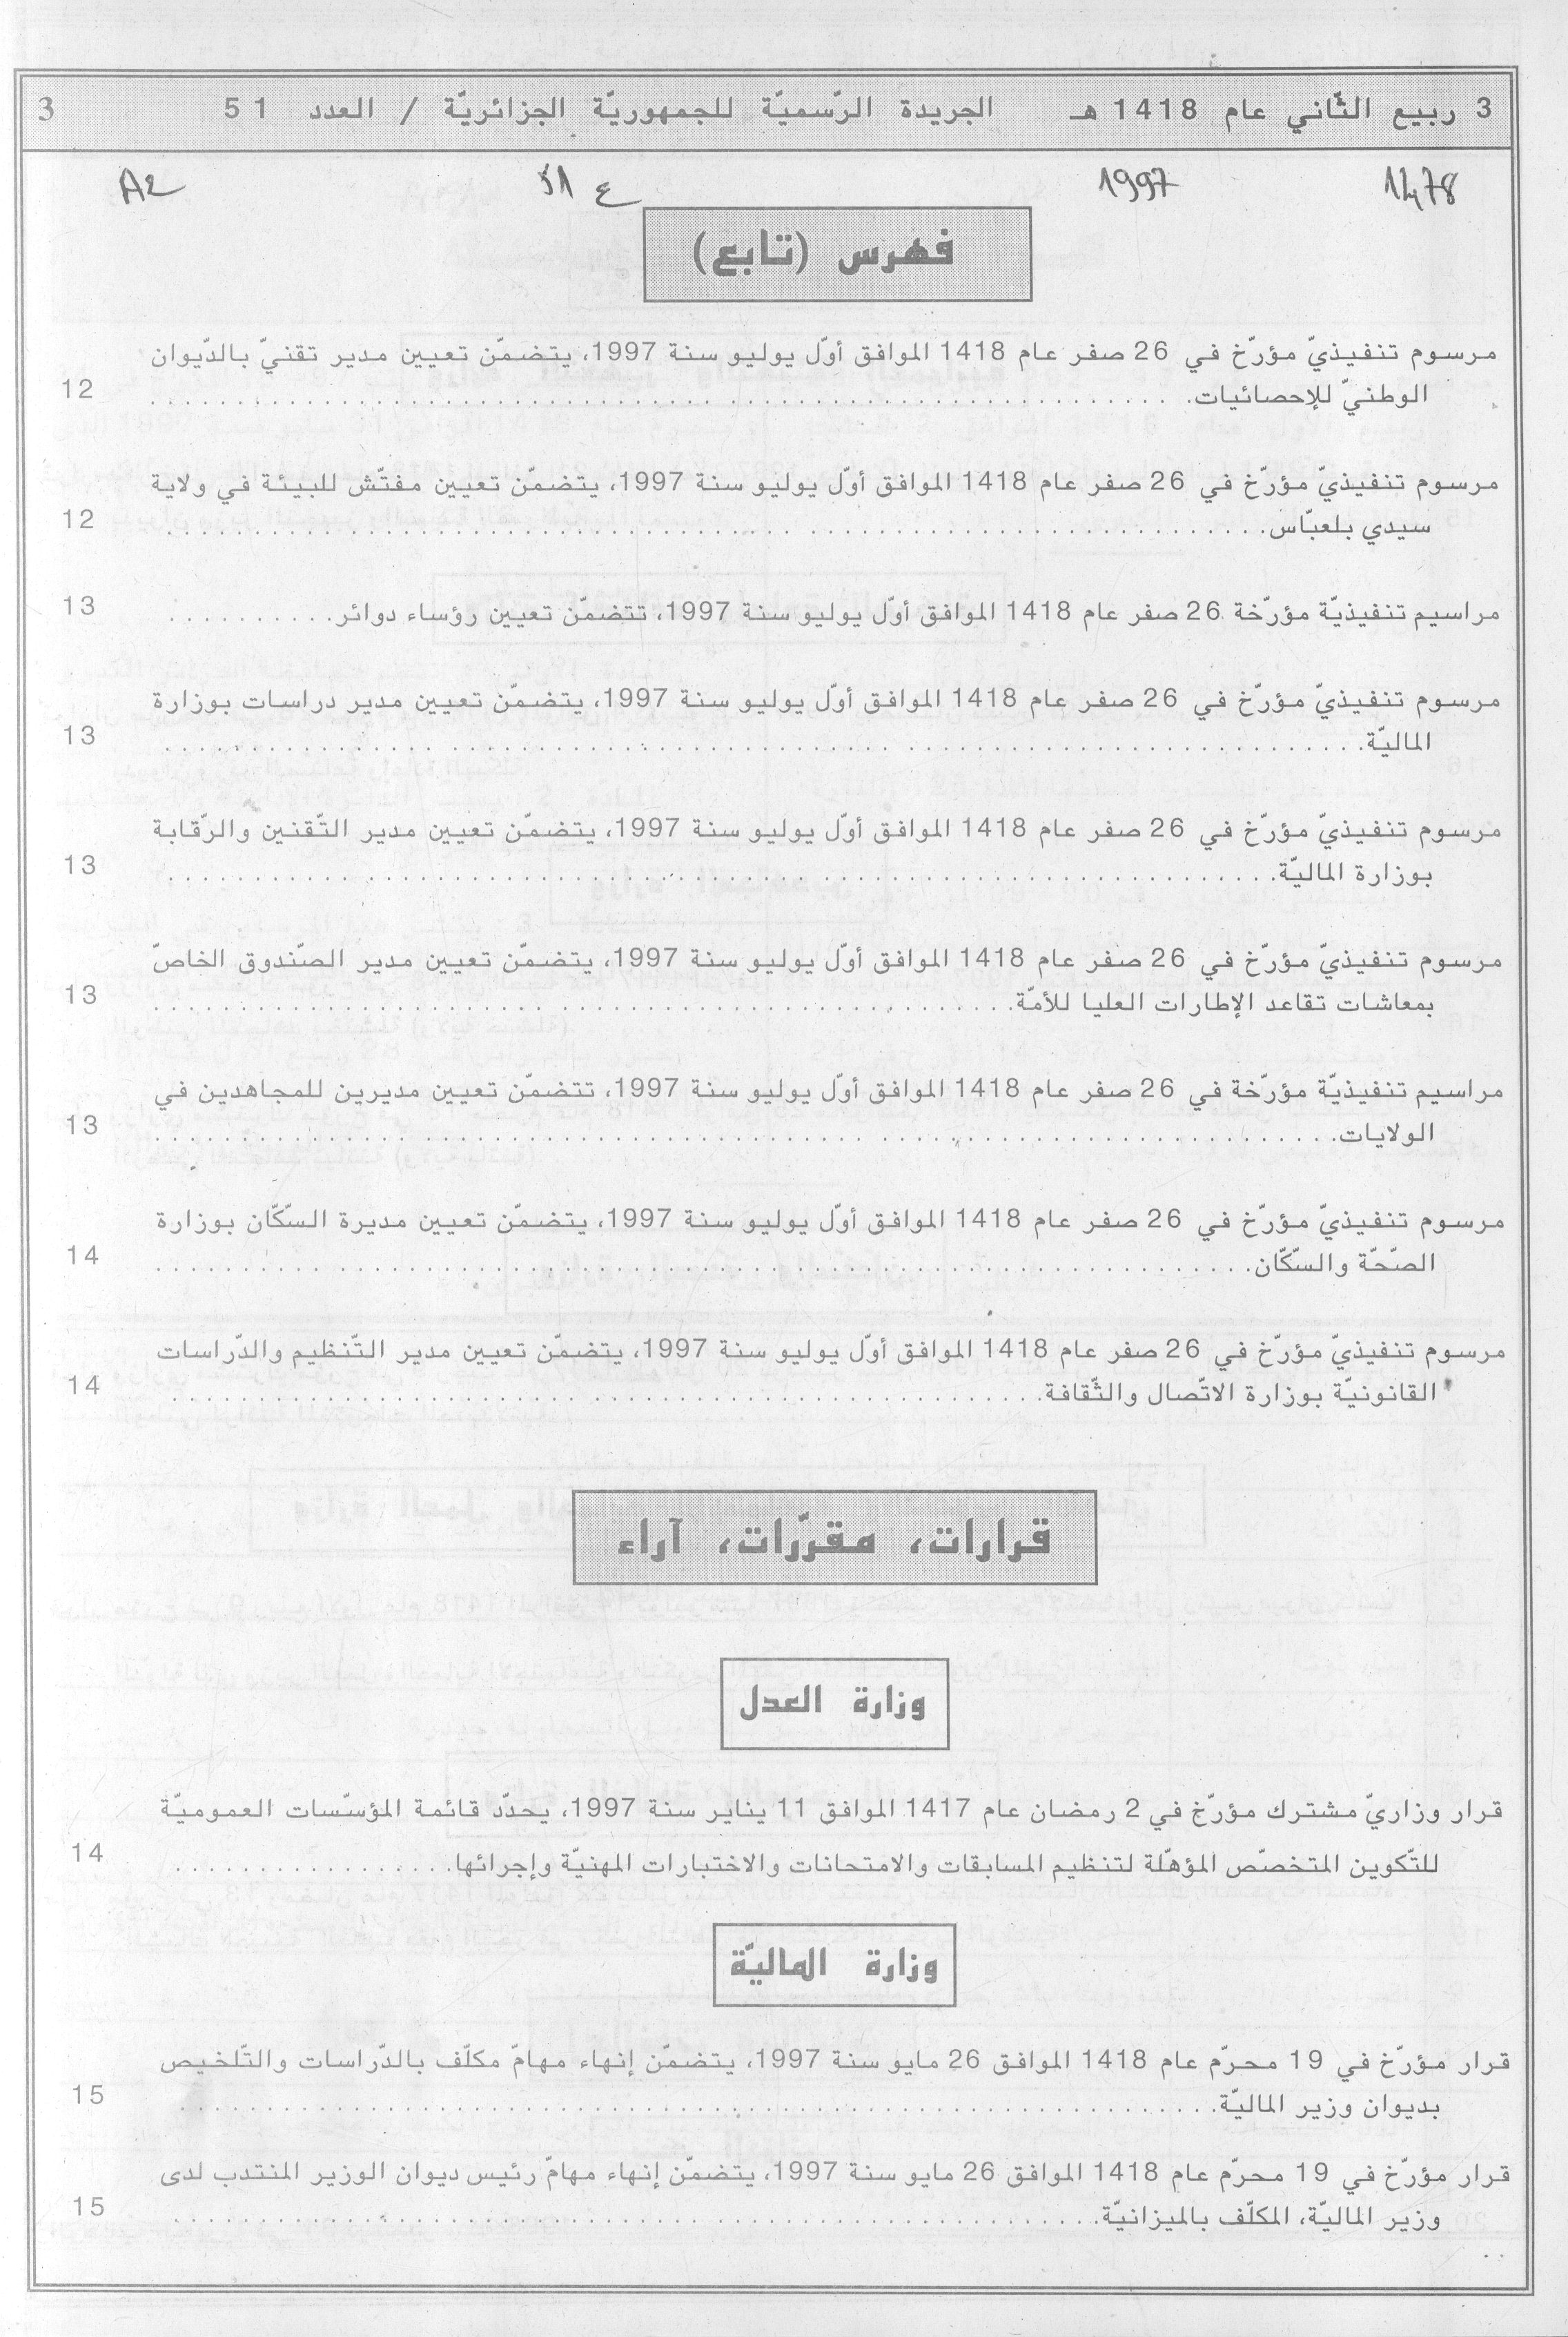 3 ربيع الثّاني عام 1418 هـ الجريدة الرّسميّة للجمهوريّة الجزائريّة / العدد 51 3
1478 1997 ع 51 A2
فهرس (تابع)
مرسوم تنفيذيّ مؤرّخ في 26 صفر عام 1418 الموافق أوّل يوليو سنة 1997، يتضمّن تعيين مدير تقنيّ بالدّيوان
الوطنيّ للإحصائيات. 12
مرسوم تنفيذيّ مؤرّخ في 26 صفر عام 1418 الموافق أوّل يوليو سنة 1997، يتضمّن تعيين مفتّش للبيئة في ولاية
سيدي بلعبّاس. 12
مراسيم تنفيذيّة مؤرّخة 26 صفر عام 1418 الموافق أوّل يوليو سنة 1997، تتضمّن تعيين رؤساء دوائر. 13
مرسوم تنفيذيّ مؤرّخ في 26 صفر عام 1418 الموافق أوّل يوليو سنة 1997، يتضمّن تعيين مدير دراسات بوزارة
الماليّة. 13
مرسوم تنفيذيّ مؤرّخ في 26 صفر عام 1418 الموافق أوّل يوليو سنة 1997، يتضمّن تعيين مدير التّقنين والرّقابة
بوزارة الماليّة. 13
مرسوم تنفيذيّ مؤرّخ في 26 صفر عام 1418 الموافق أوّل يوليو سنة 1997، يتضمّن تعيين مدير الصّندوق الخاصّ
بمعاشات تقاعد الإطارات العليا للأمّة. 13
مراسيم تنفيذيّة مؤرّخة في 26 صفر عام 1418 الموافق أوّل يوليو سنة 1997، تتضمّن تعيين مديرين للمجاهدين في
الولايات. 13
مرسوم تنفيذيّ مؤرّخ في 26 صفر عام 1418 الموافق أوّل يوليو سنة 1997، يتضمّن تعيين مديرة السّكّان بوزارة
الصّحّة والسّكّان. 14
مرسوم تنفيذيّ مؤرّخ في 26 صفر عام 1418 الموافق أوّل يوليو سنة 1997، يتضمّن تعيين مدير التّنظيم والدّراسات
القانونيّة بوزارة الاتّصال والثّقافة. 14
قرارات، مقرّرات، آراء
وزارة العدل
قرار وزاريّ مشترك مؤرّخ في 2 رمضان عام 1417 الموافق 11 يناير سنة 1997، يحدّد قائمة المؤسّسات العموميّة
للتّكوين المتخصّص المؤهّلة لتنظيم المسابقات والامتحانات والاختبارات المهنيّة وإجرائها. 14
وزارة الماليّة
قرار مؤرّخ في 19 محرّم عام 1418 الموافق 26 مايو سنة 1997، يتضمّن إنهاء مهامّ مكلّف بالدّراسات والتّلخيص
بديوان وزير الماليّة. 15
قرار مؤرّخ في 19 محرّم عام 1418 الموافق 26 مايو سنة 1997، يتضمّن إنهاء مهامّ رئيس ديوان الوزير المنتدب لدى
وزير الماليّة، المكلّف بالميزانيّة. 15